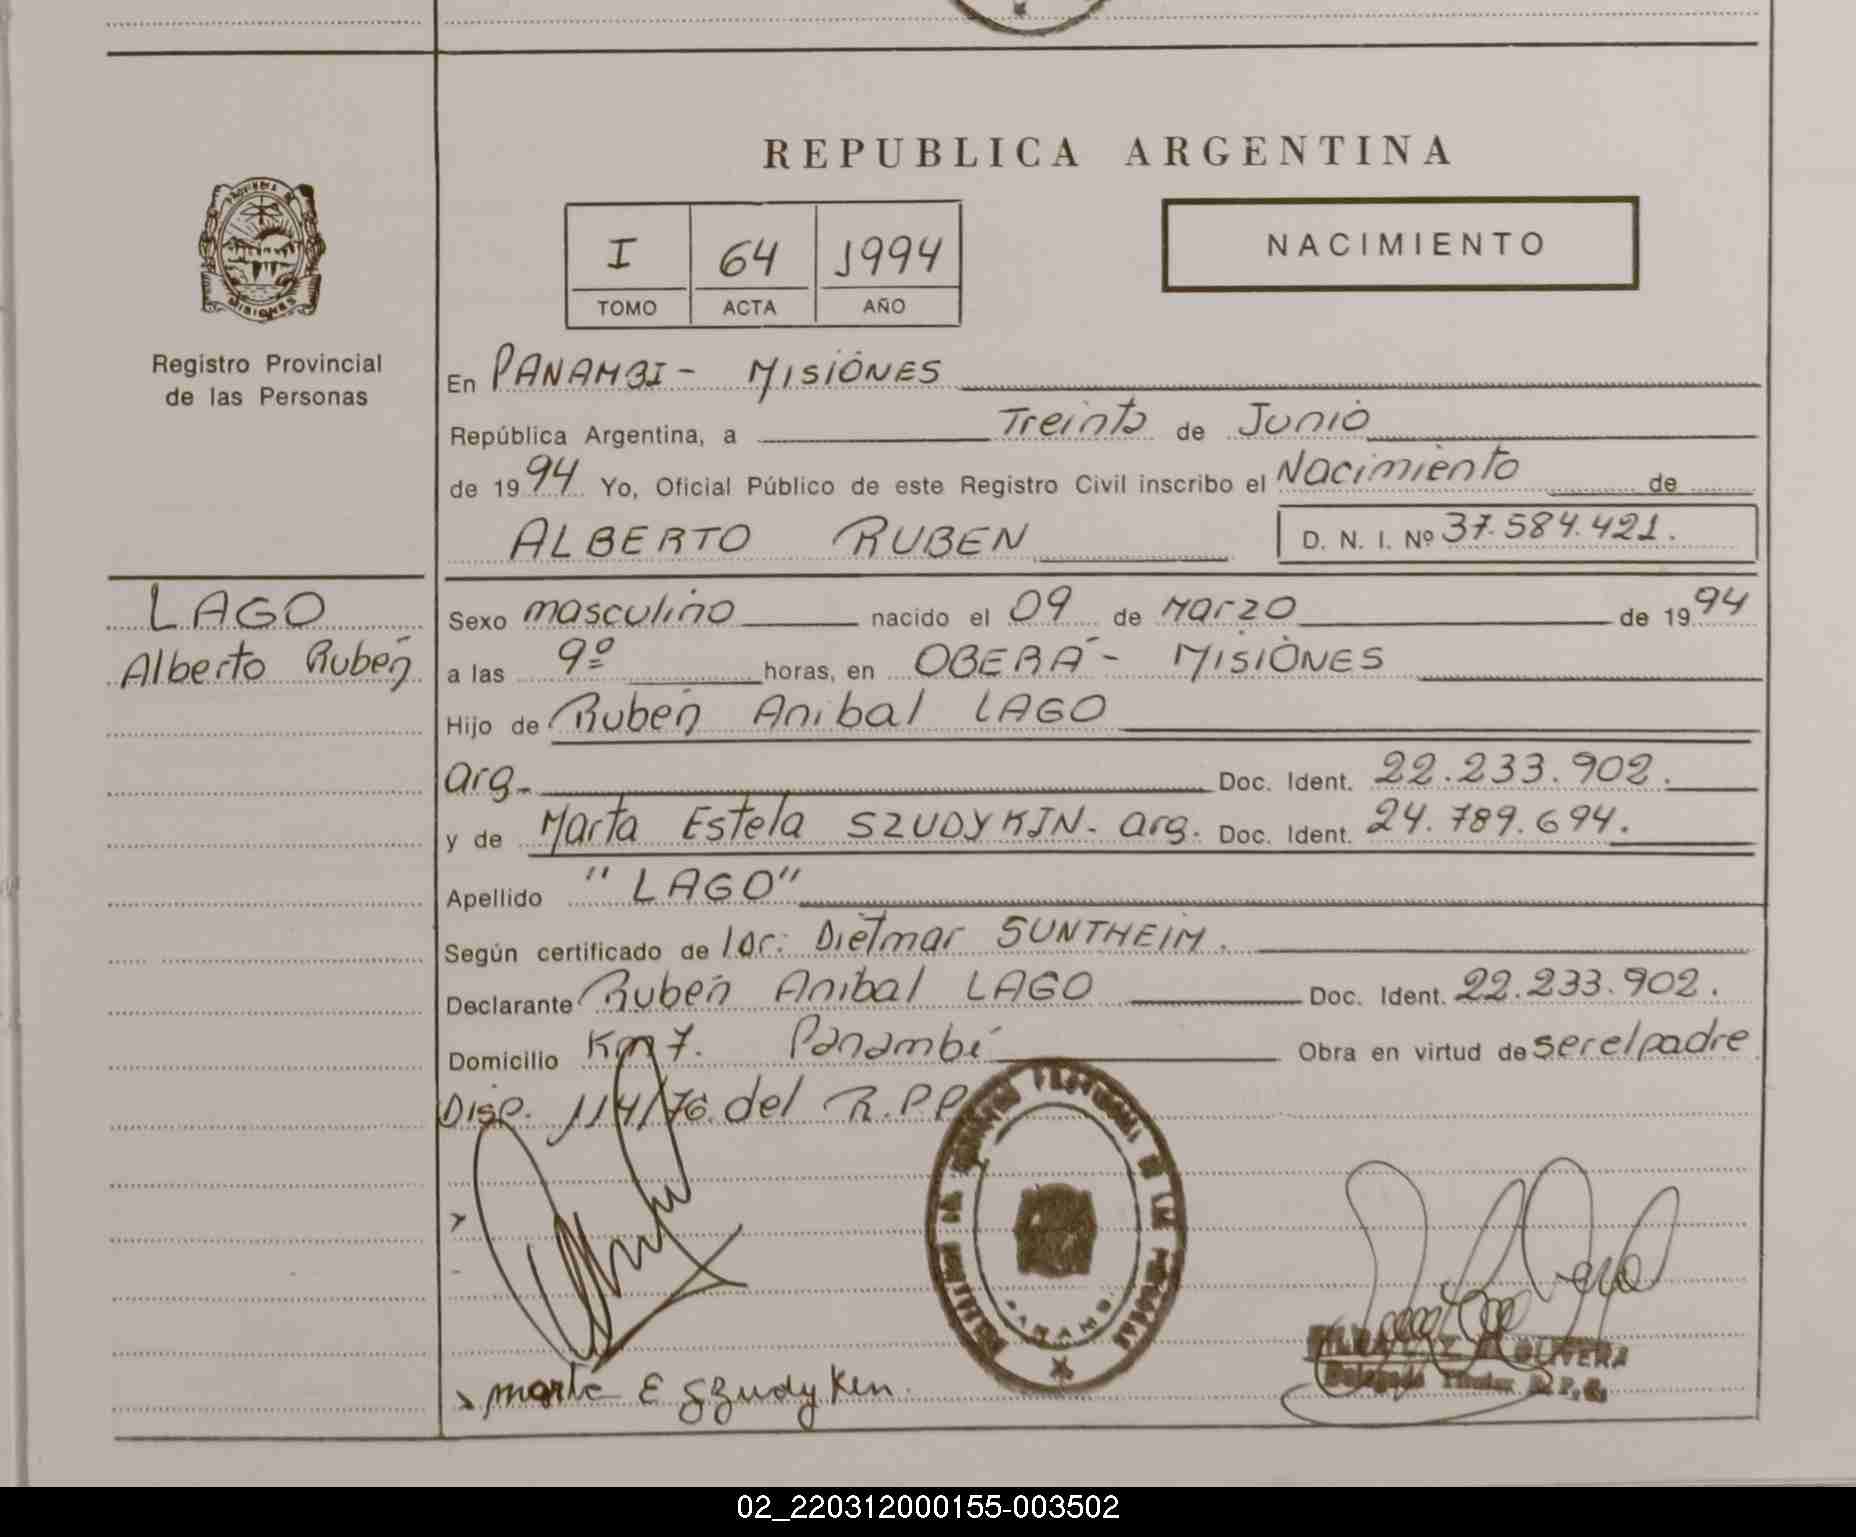 REPUBLICA ARGENTINA
PROVINCIA DE
MISIONES
Registro Provincial
de las Personas
I 64 1994
TOMO ACTA AÑO
NACIMIENTO
En PANAMBI - MISIONES
República Argentina, a Treinta de Junio
de 1994 Yo, Oficial Público de este Registro Civil inscribo el Nacimiento de
ALBERTO RUBEN D. N. I. Nº 37.584.421.
LAGO
Alberto Rubén
Sexo masculino nacido el 09 de Marzo de 1994
a las 9º horas, en OBERÁ - MISIONES
Hijo de Rubén Anibal LAGO
arg. Doc. Ident. 22.233.902.
y de Marta Estela SZUDYKIN. arg. Doc. Ident. 24.789.694.
Apellido "LAGO"
Según certificado de Dietmar SUNTHEIM.
Declarante Rubén Anibal LAGO Doc. Ident. 22.233.902.
Domicilio Km 7. Panambí Obra en virtud de ser el padre
Disp. 114/76 del R.P.P.
PANAMBI
OLIVERA
Delegado Titular R.P.
Marta E Szudyken.
02_220312000155-003502